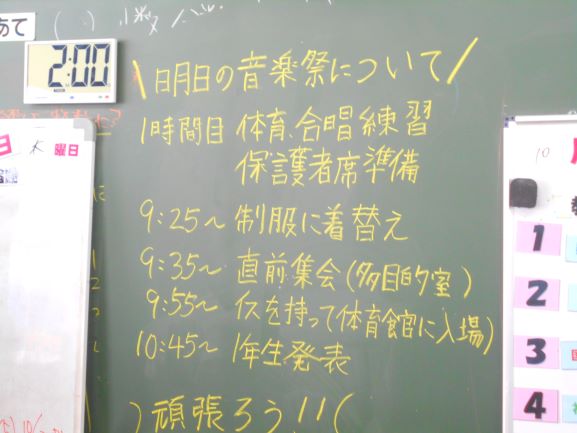 あて
2:00
\明日の音楽祭について/
1時間目 体育、合唱練習
保護者席準備
9:25~ 制服に着替え
9:35~ 直前集会(多目的室)
9:55~ イスを持って体育館に入場)
10:45~ 1年生発表
)頑張ろう!!(
日 木 曜日
10
1
2
3
4